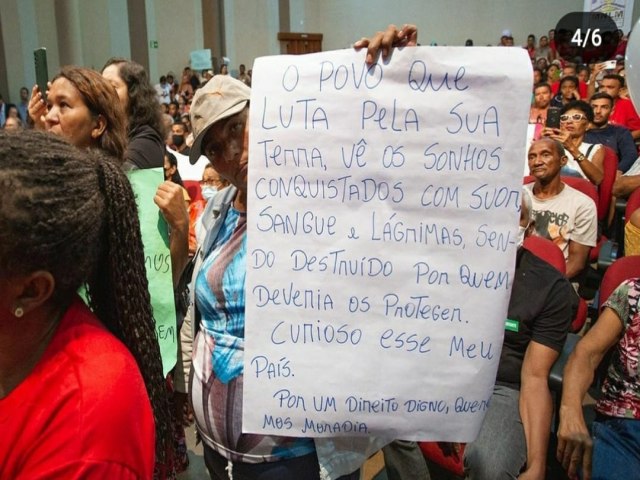 4/6
O POVO QUE
LUTA PELA SUA
TERRA, VÊ OS SONHOS
CONQUISTADOS COM SUOR
SANGUE e LÁGRIMAS, SEN-
DO DESTRUÍDO POR QUEM
DEVERIA OS PROTEGER.
CURIOSO ESSE MEU
PAÍS.
POR UM DIREITO DIGNO, QUERE
MOS MORADIA.